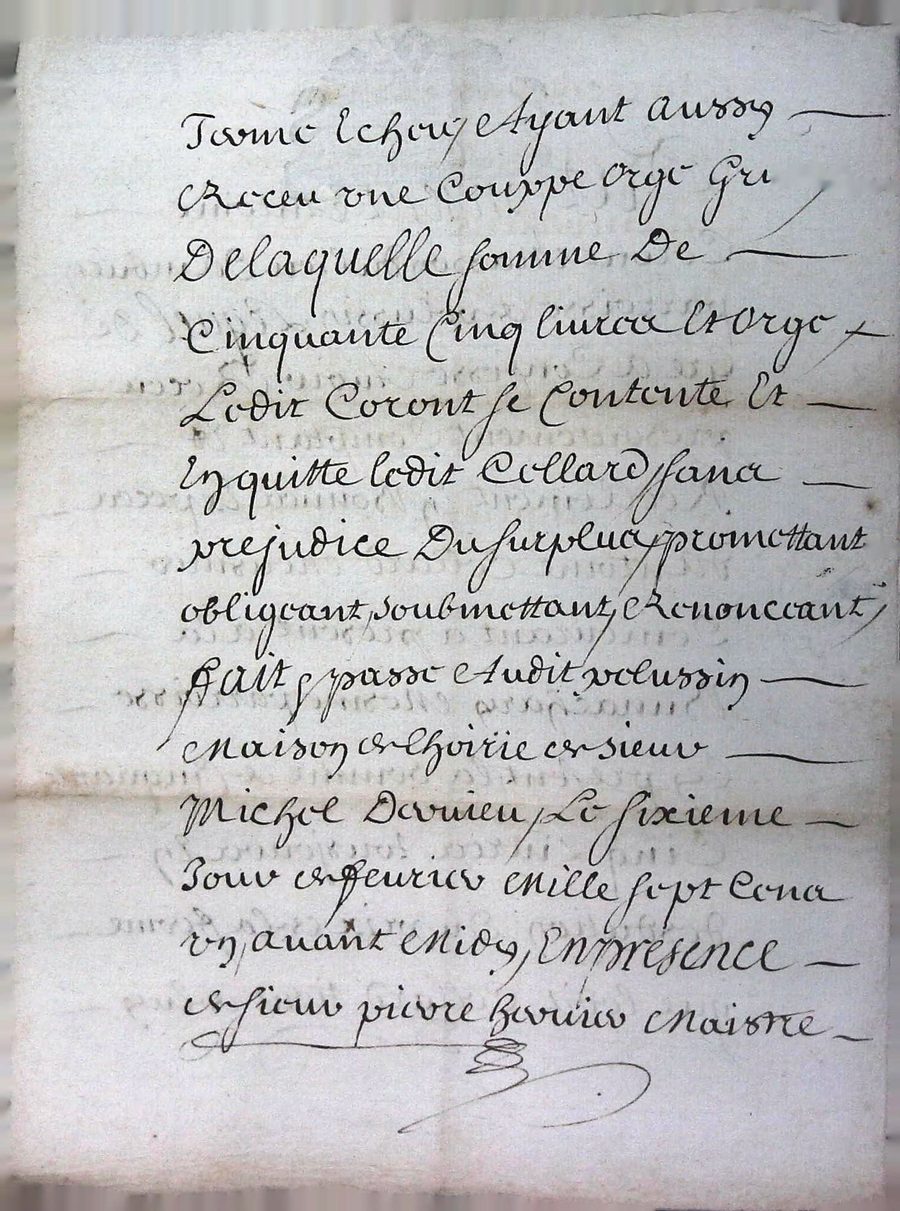 Terme Echeu, Et ayant aussy
Receu une Couppe orge Gri
De laquelle somme De
Cinquante Cinq livres Et orge
Ledit Coront se Contente Et
En quitte ledit Collard, sans
prejudice Du surplus, promettant
obligeant, soubmettant, Renonceant,
fait, passé Audit pelussin
Maison de lhoirie de sieur
Michel Dervieu, Le sixieme
Jour de feurier Mille sept Cens
un, avant Midy, En presence
de sieur pierre Maistre